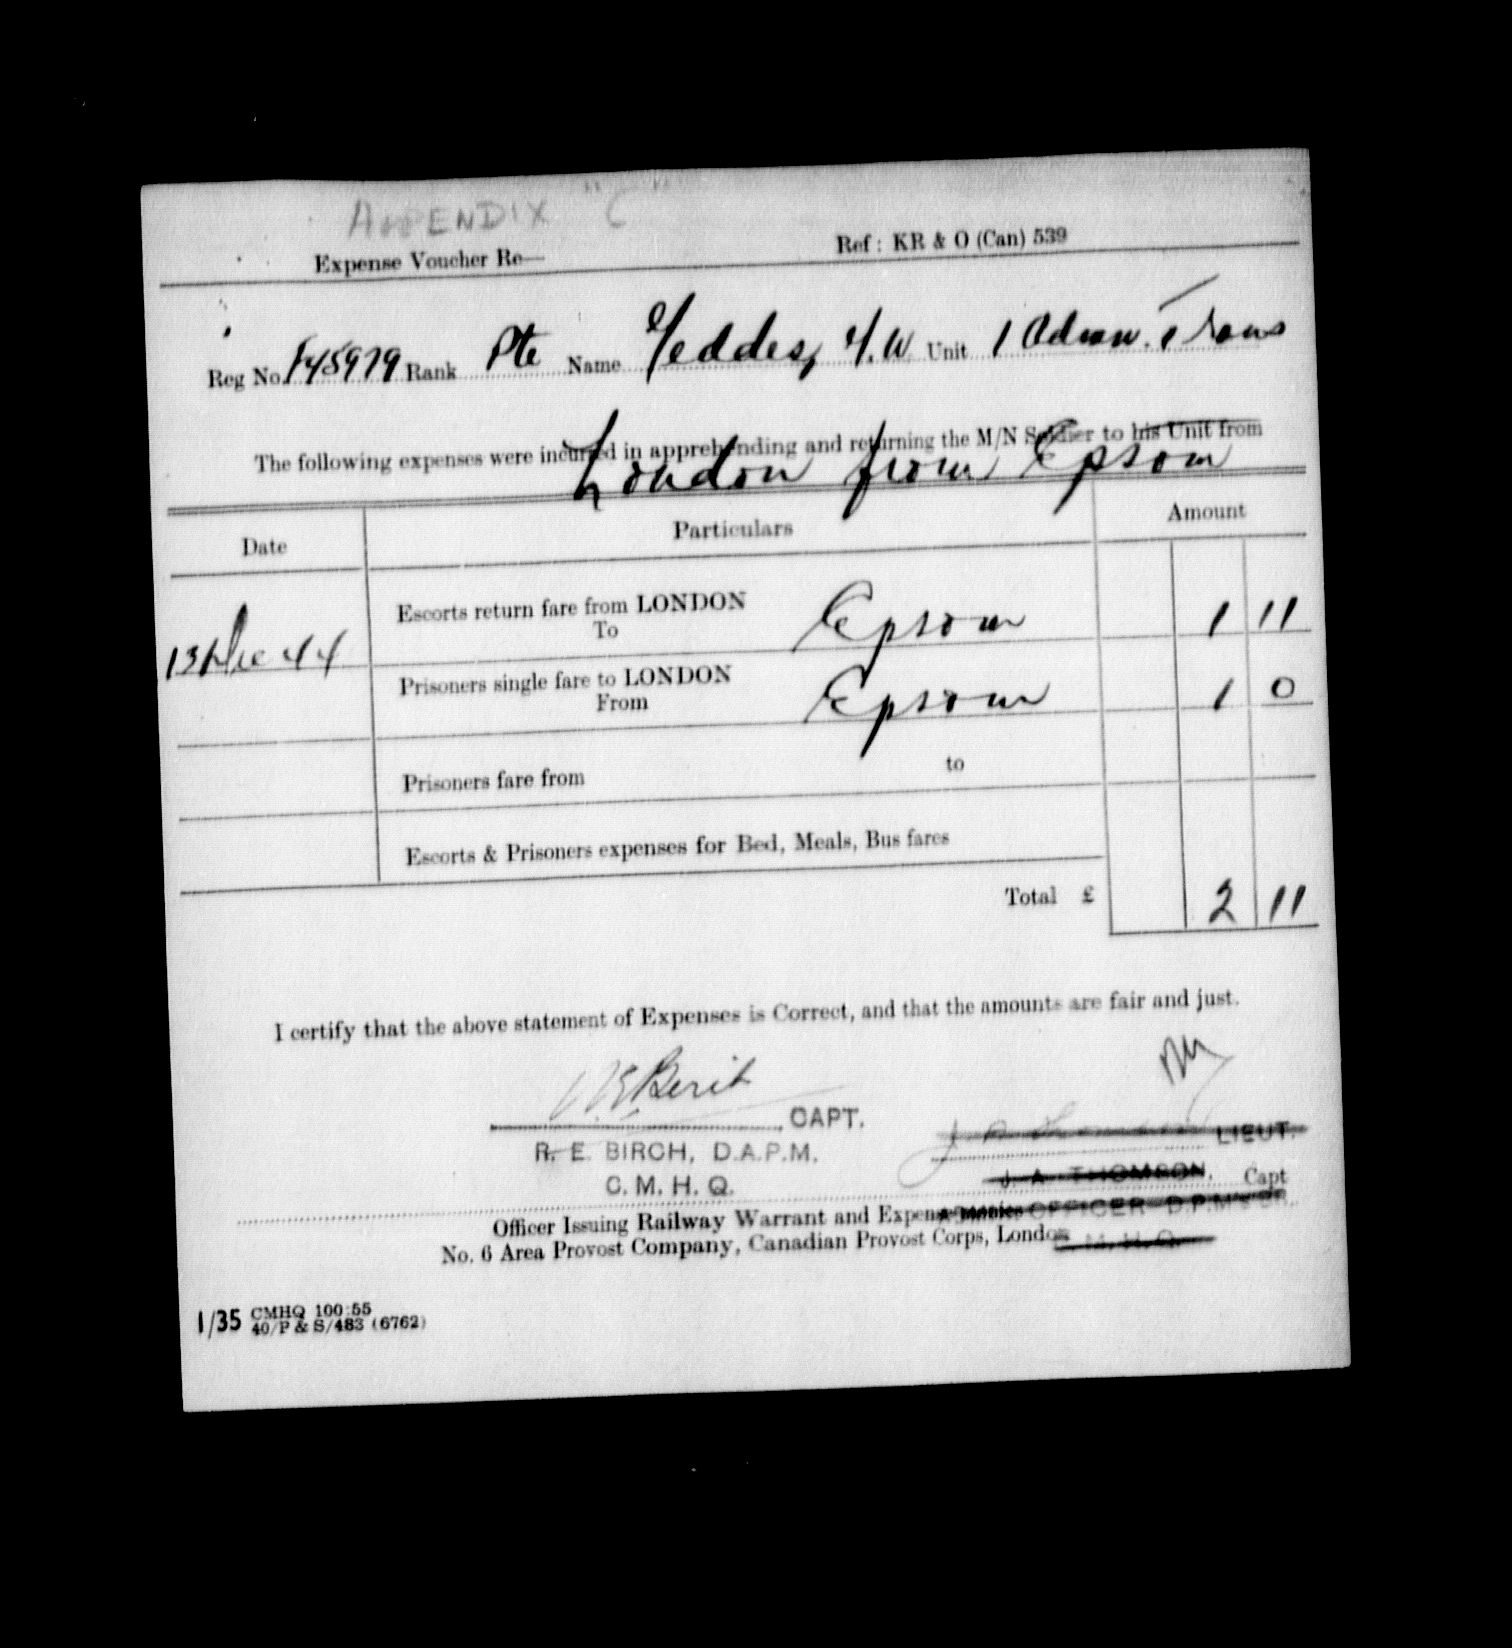 APPENDIX "C"
Expense Voucher Re— Ref: KR & O (Can) 539
Reg No. F45979 Rank Pte Name Geddes, G.W Unit 1 Admn. Trans
The following expenses were incurred in apprehending and returning the M/N Soldier to his Unit from
London from Epsom
Date Particulars Amount
Escorts return fare from LONDON Epsom 1 11
To
13 Dec 44
Prisoners single fare to LONDON Epsom 1 0
From
Prisoners fare from to
Escorts & Prisoners expenses for Bed, Meals, Bus fares
Total £ 2 11
I certify that the above statement of Expenses is Correct, and that the amounts are fair and just.
CAPT.
LIEUT.
R. E. BIRCH, D.A.P.M.
J. A. THOMSON. Capt
C. M. H. Q.
Officer Issuing Railway Warrant and Expense Monies OFFICER D.P.M'S
No. 6 Area Provost Company, Canadian Provost Corps, London M. H. Q.
1/35 CMHQ 100:55
40/P & S/483 (6762)